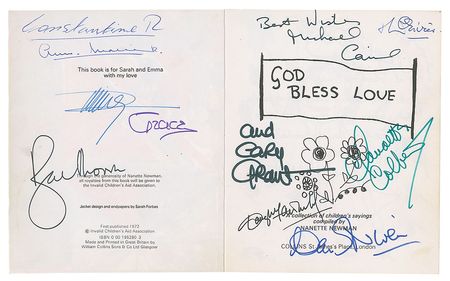 Constantine R
Anne-Marie R.
This book is for Sarah and Emma
with my love
Grace
the generosity of Nanette Newman,
all royalties from this book will be given to
the Invalid Children's Aid Association.
Jacket design and endpapers by Sarah Forbes
First published 1972
© Invalid Children's Aid Association, 1972
ISBN 0 00 195280 3
Made and Printed in Great Britain by
William Collins Sons & Co Ltd Glasgow
Best Wishes
Michael
Caine
Olivier
GOD
BLESS LOVE
and
Cary
Grant
collection of children's sayings
compiled by
NANETTE NEWMAN
COLLINS St James's Place, London
David Niven